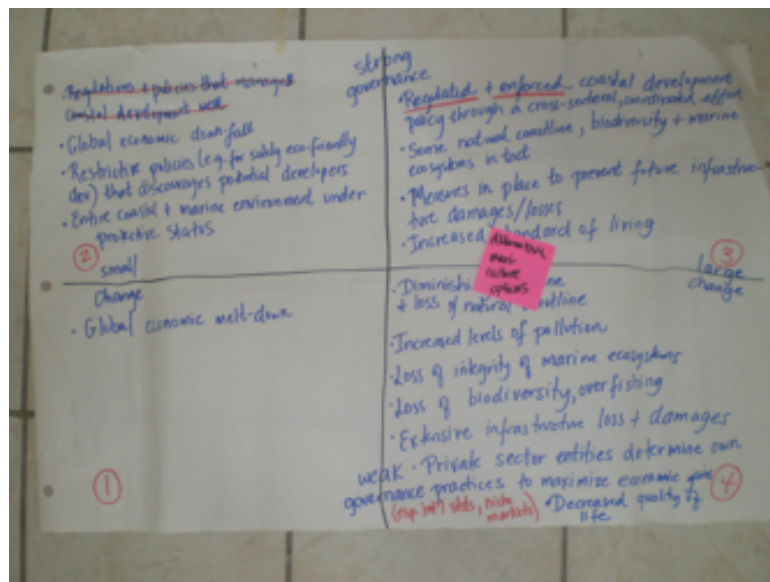 strong
governance
• Regulations + policies that manages
coastal development well
• Global economic down-fall
• Restrictive policies (e.g. for solely eco-friendly
dev) that discourages potential developers
• Entire coastal + marine environment under
protective status
②
small
change
• Regulated + enforced coastal development
policy through a cross-sectoral, coordinated effort
• Some natural coastline, biodiversity + marine
ecosystems in tact
• Measures in place to prevent future infrastruc-
ture damages/losses
• Increased standard of living
③
large
change
Alternative
mari-
culture
options
• Global economic melt-down
①
• Diminishi
+ loss of natural
• Increased levels of pollution
• Loss of integrity of marine ecosystems
• Loss of biodiversity, overfishing
• Extensive infrastructure loss + damages
weak • Private sector entities determine own
governance practices to maximize economic gains
(esp. int'l stds, niche
markets) • Decreased quality of
life
④